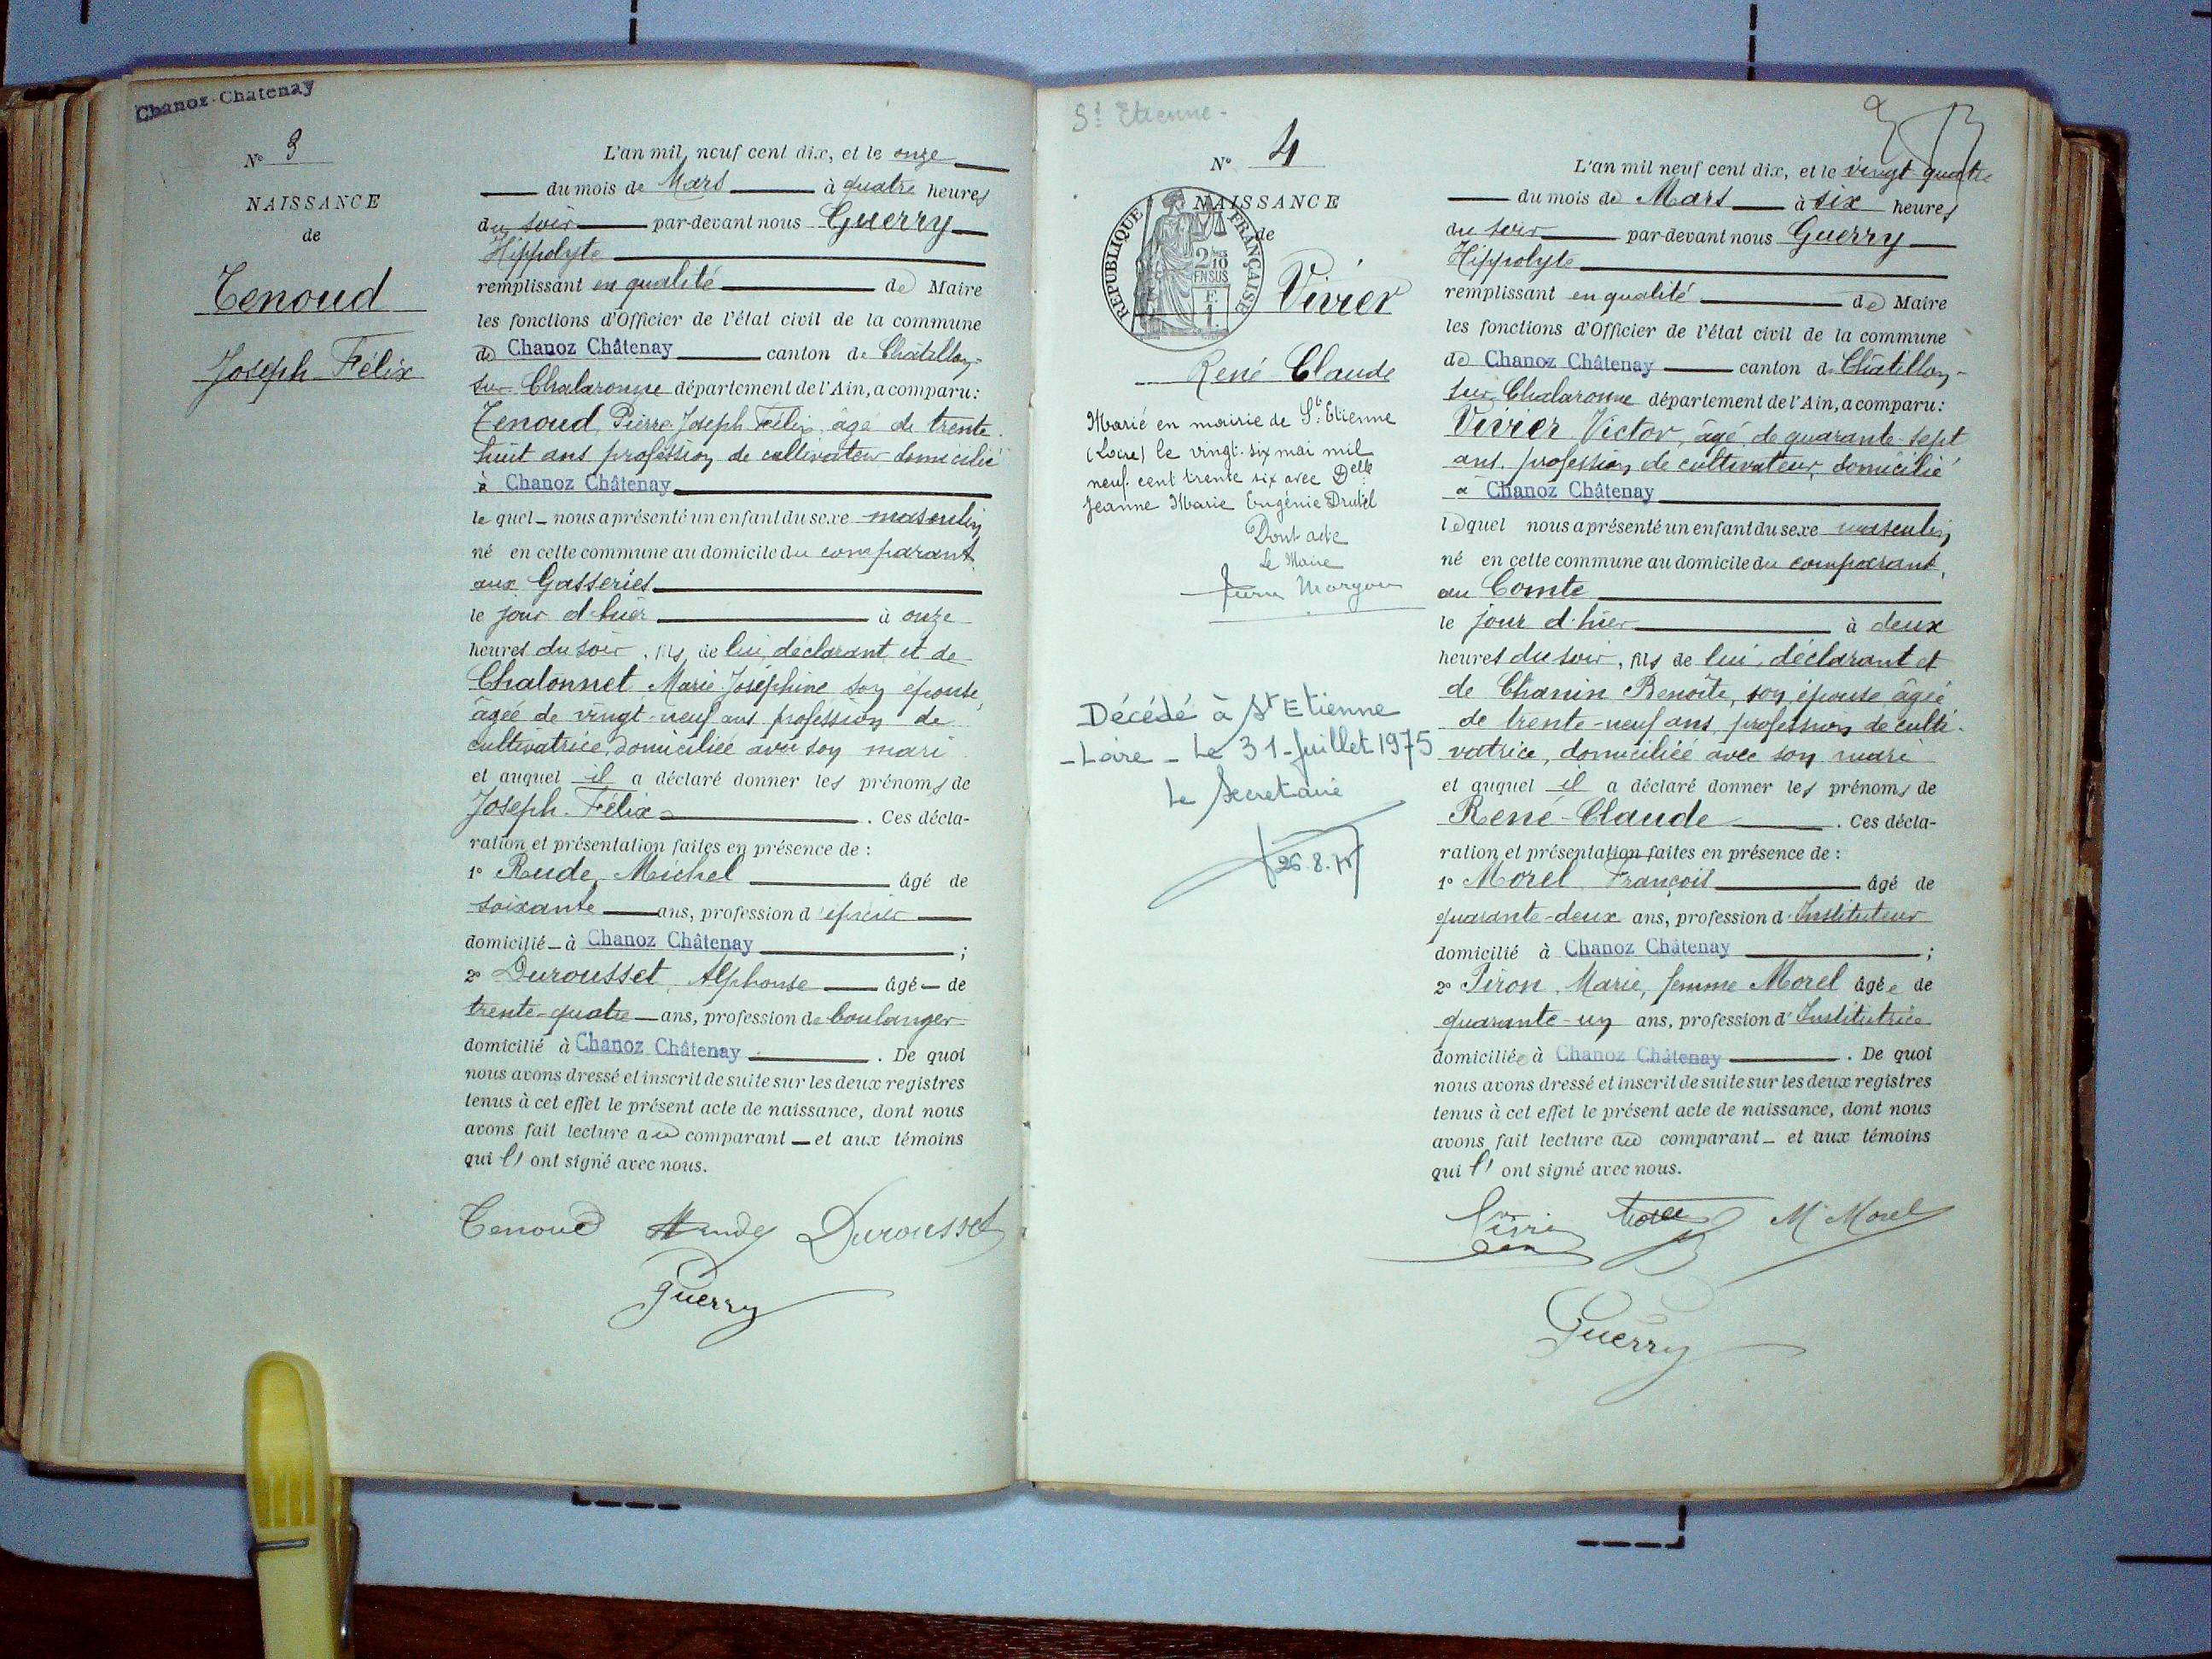 Chanoz-Chatenay
N° 3
NAISSANCE
de
Tenoud
Joseph-Félix
L'an mil neuf cent dix, et le onze
du mois de Mars à quatre heures
du soir par-devant nous Guerry
Hippolyte
remplissant en qualité de Maire
les fonctions d'Officier de l'état civil de la commune
de Chanoz Châtenay canton de Châtillon-
sur Chalaronne département de l'Ain, a comparu:
Tenoud, Pierre Joseph Félix, âgé de trente-
huit ans profession de cultivateur domicilié
à Chanoz Châtenay
le quel nous a présenté un enfant du sexe masculin
né en cette commune au domicile du comparant
aux Gasseries
le jour d'hier à onze
heures du soir, fils de lui, déclarant et de
Chalonnet Marie Joséphine son épouse,
âgée de vingt-neuf ans profession de
cultivatrice, domiciliée avec son mari
et auquel il a déclaré donner les prénoms de
Joseph-Félix. Ces décla-
ration et présentation faites en présence de :
1° Rude, Michel âgé de
soixante ans, profession d'épicier
domicilié à Chanoz Châtenay ;
2° Durousset, Alphonse âgé de
trente-quatre ans, profession de boulanger
domicilié à Chanoz Châtenay. De quoi
nous avons dressé et inscrit de suite sur les deux registres
tenus à cet effet le présent acte de naissance, dont nous
avons fait lecture au comparant et aux témoins
qui l'ont signé avec nous.
Tenoud Rude Durousset
Guerry
St Etienne-
N° 4
NAISSANCE
de
RÉPUBLIQUE FRANÇAISE
2/10
EN SUS
Vivier
René Claude
Marié en mairie de St Etienne
(Loire) le vingt-six mai mil
neuf cent trente six avec Delle
Jeanne Marie Eugénie Drutel
Dont acte
Le Maire
Décédé à St Etienne
-Loire- Le 31-Juillet 1975
Le Secretaire
26.8.75
L'an mil neuf cent dix, et le vingt quatre
du mois de Mars à six heures
du soir par-devant nous Guerry
Hippolyte
remplissant en qualité de Maire
les fonctions d'Officier de l'état civil de la commune
de Chanoz Châtenay canton de Châtillon-
sur Chalaronne département de l'Ain, a comparu:
Vivier Victor, âgé de quarante-sept
ans, profession de cultivateur, domicilié
à Chanoz Châtenay
lequel nous a présenté un enfant du sexe masculin
né en cette commune au domicile du comparant,
au Comte
le jour d'hier à deux
heures du soir, fils de lui, déclarant et
de Chanin Benoîte, son épouse âgée
de trente-neuf ans, profession de culti-
vatrice, domiciliée avec son mari
et auquel il a déclaré donner les prénoms de
René-Claude. Ces décla-
ration et présentation faites en présence de :
1° Morel, François âgé de
quarante-deux ans, profession d'Instituteur
domicilié à Chanoz Châtenay ;
2° Piron, Marie, femme Morel âgée de
quarante-un ans, profession d'Institutrice
domiciliée à Chanoz Châtenay. De quoi
nous avons dressé et inscrit de suite sur les deux registres
tenus à cet effet le présent acte de naissance, dont nous
avons fait lecture au comparant et aux témoins
qui l'ont signé avec nous.
Vivier Morel M Morel
Guerry